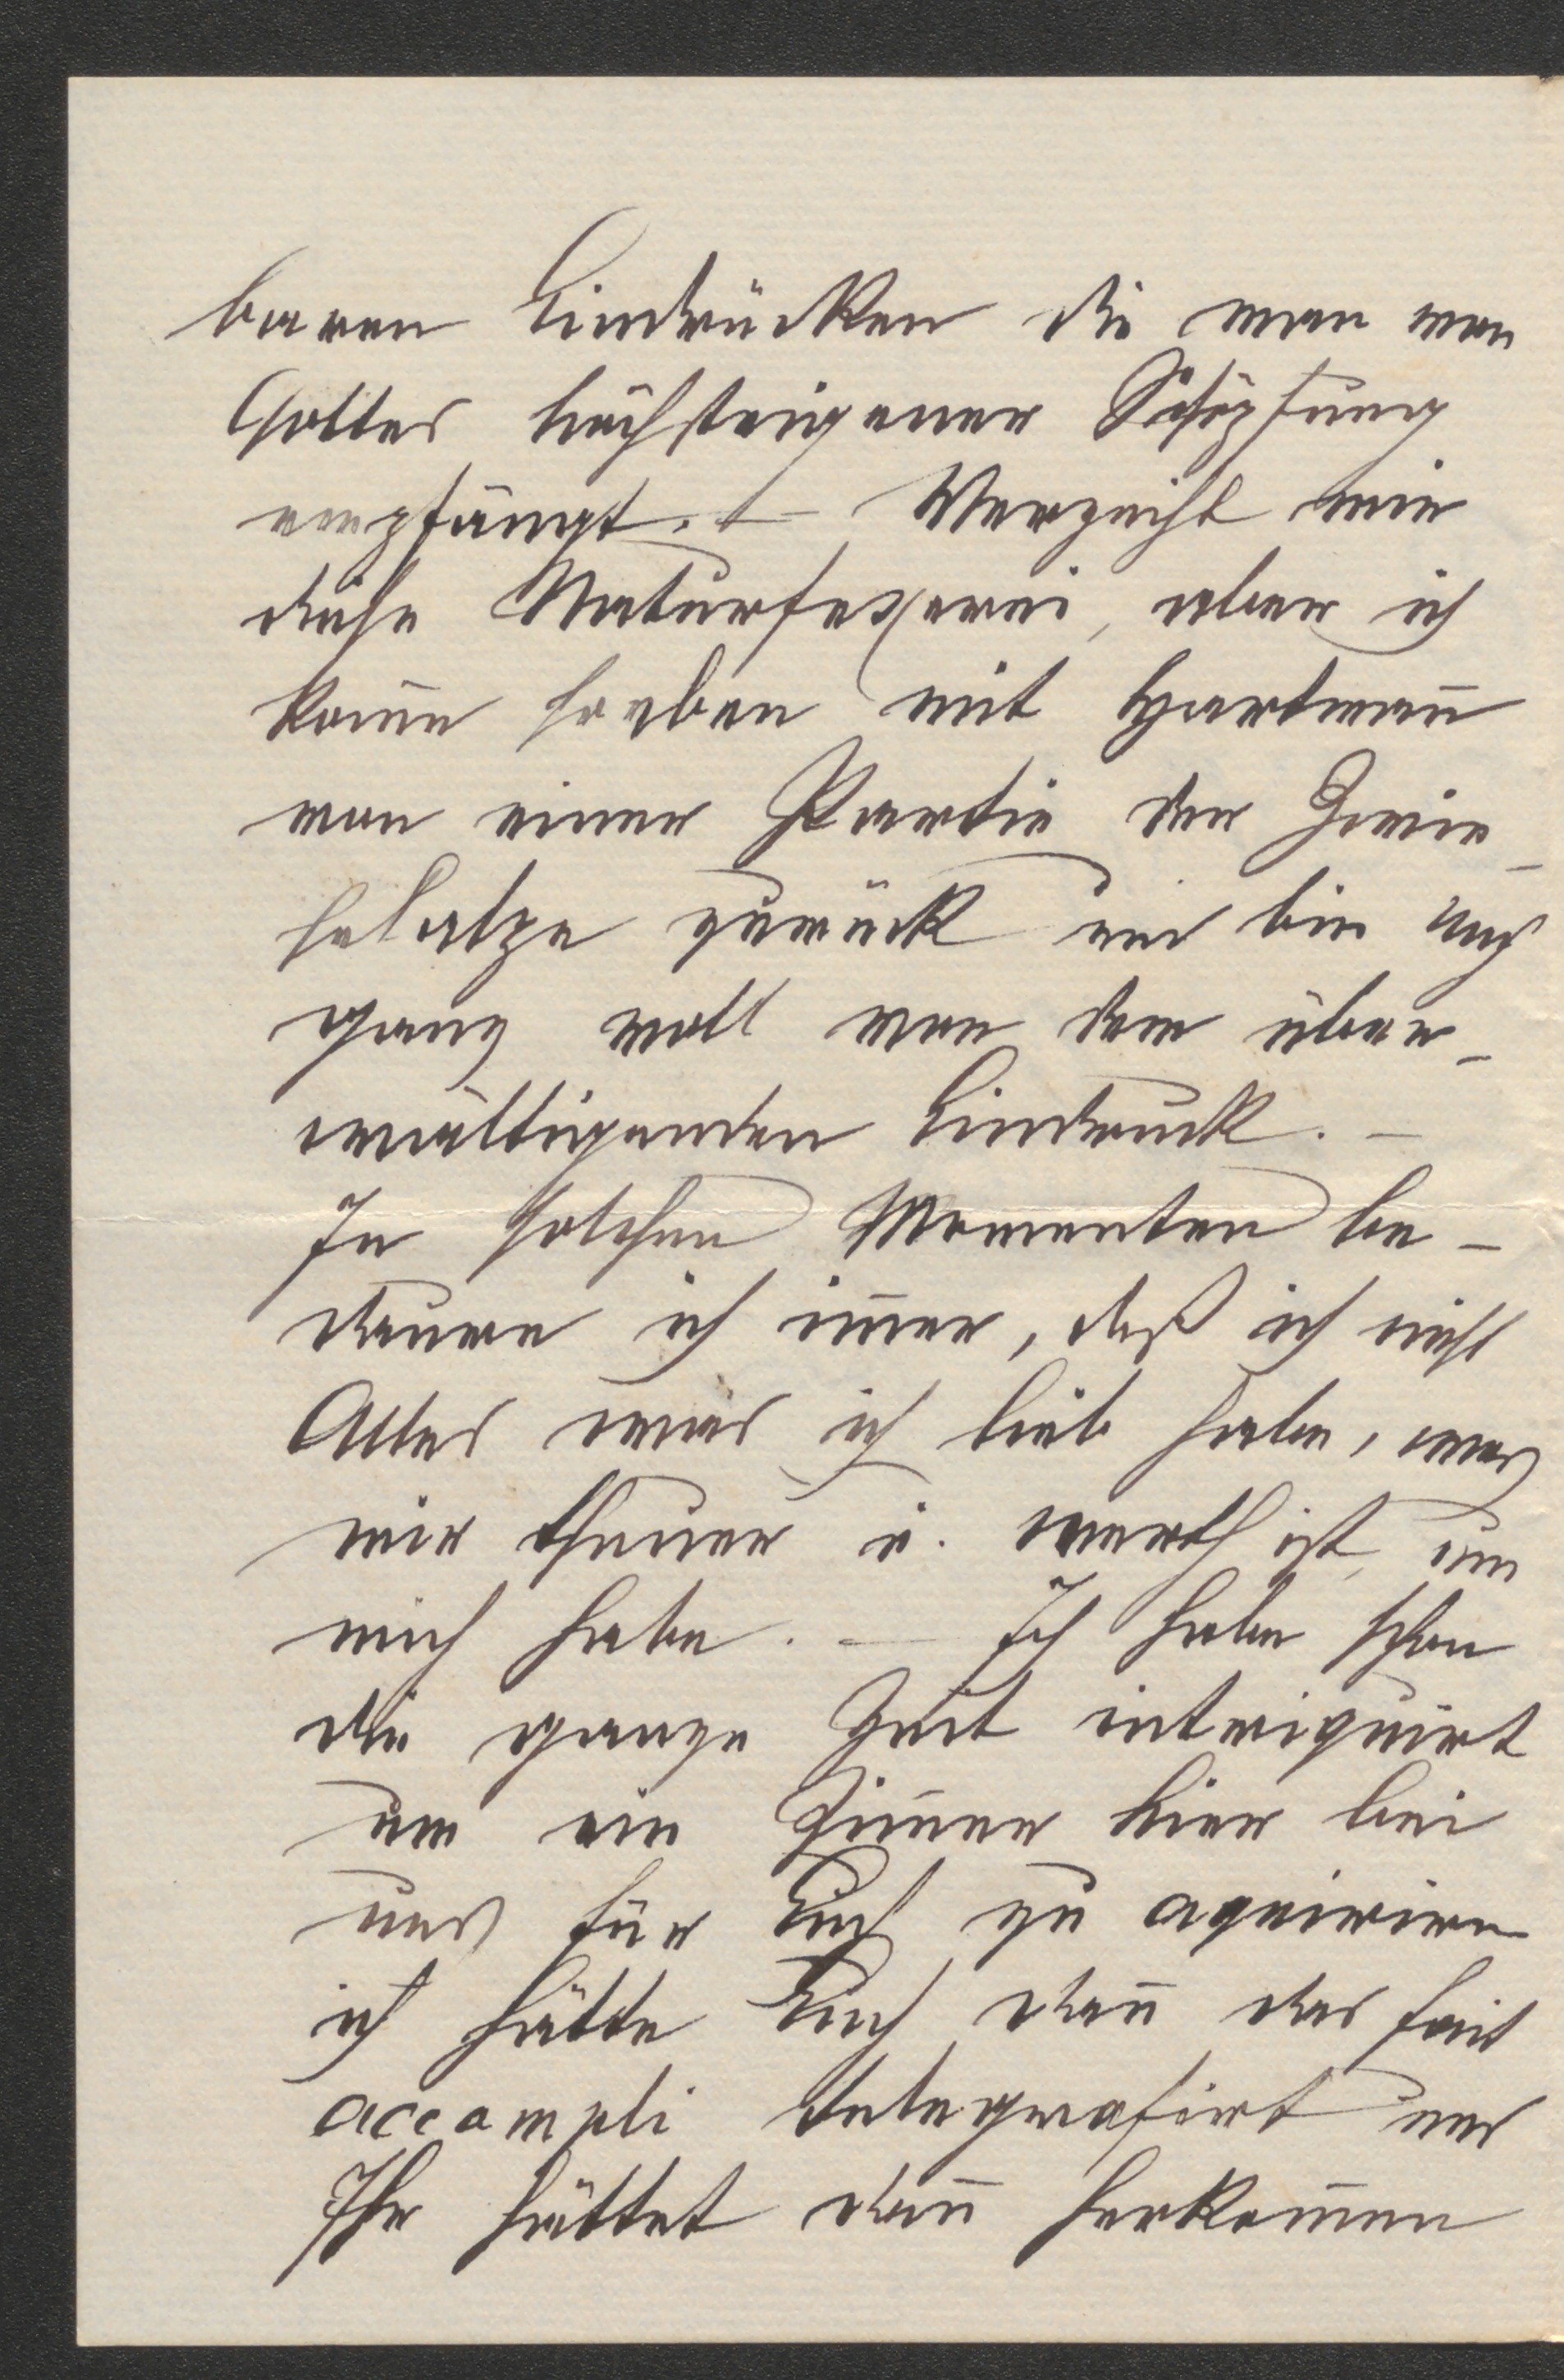 baren Eindrücken die man von
Gottes höchsteigener Schöpfung
empfängt. – Verzeiht mir
diese Naturfexerei, aber ich
kom̄e soeben mit Hartman̄
von einer Partie der Zwie_
selalpe zurück und bin noch
ganz voll von dem über_
wältigenden Eindruck. –
In solchen Momenten be_
dauere ich im̄er, daß ich nicht
Alles was ich lieb habe, was
mir theuer u. werth ist, um
mich habe. – Ich habe schon
die ganze Zeit intriguirt
um ein Zim̄er hier bei
uns für Euch zu aquiriren
ich hätte Euch dan̄ das fait
accompli telegrafirt und
Ihr hättet dan̄ herkom̄en